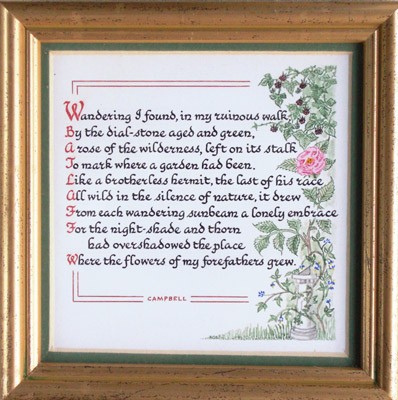 Wandering I found, in my ruinous walk,
By the dial-stone aged and green,
A rose of the wilderness, left on its stalk
To mark where a garden had been.
Like a brotherless hermit, the last of his race
All wild in the silence of nature, it drew
From each wandering sunbeam a lonely embrace
For the night-shade and thorn
had overshadowed the place
Where the flowers of my forefathers grew.
CAMPBELL